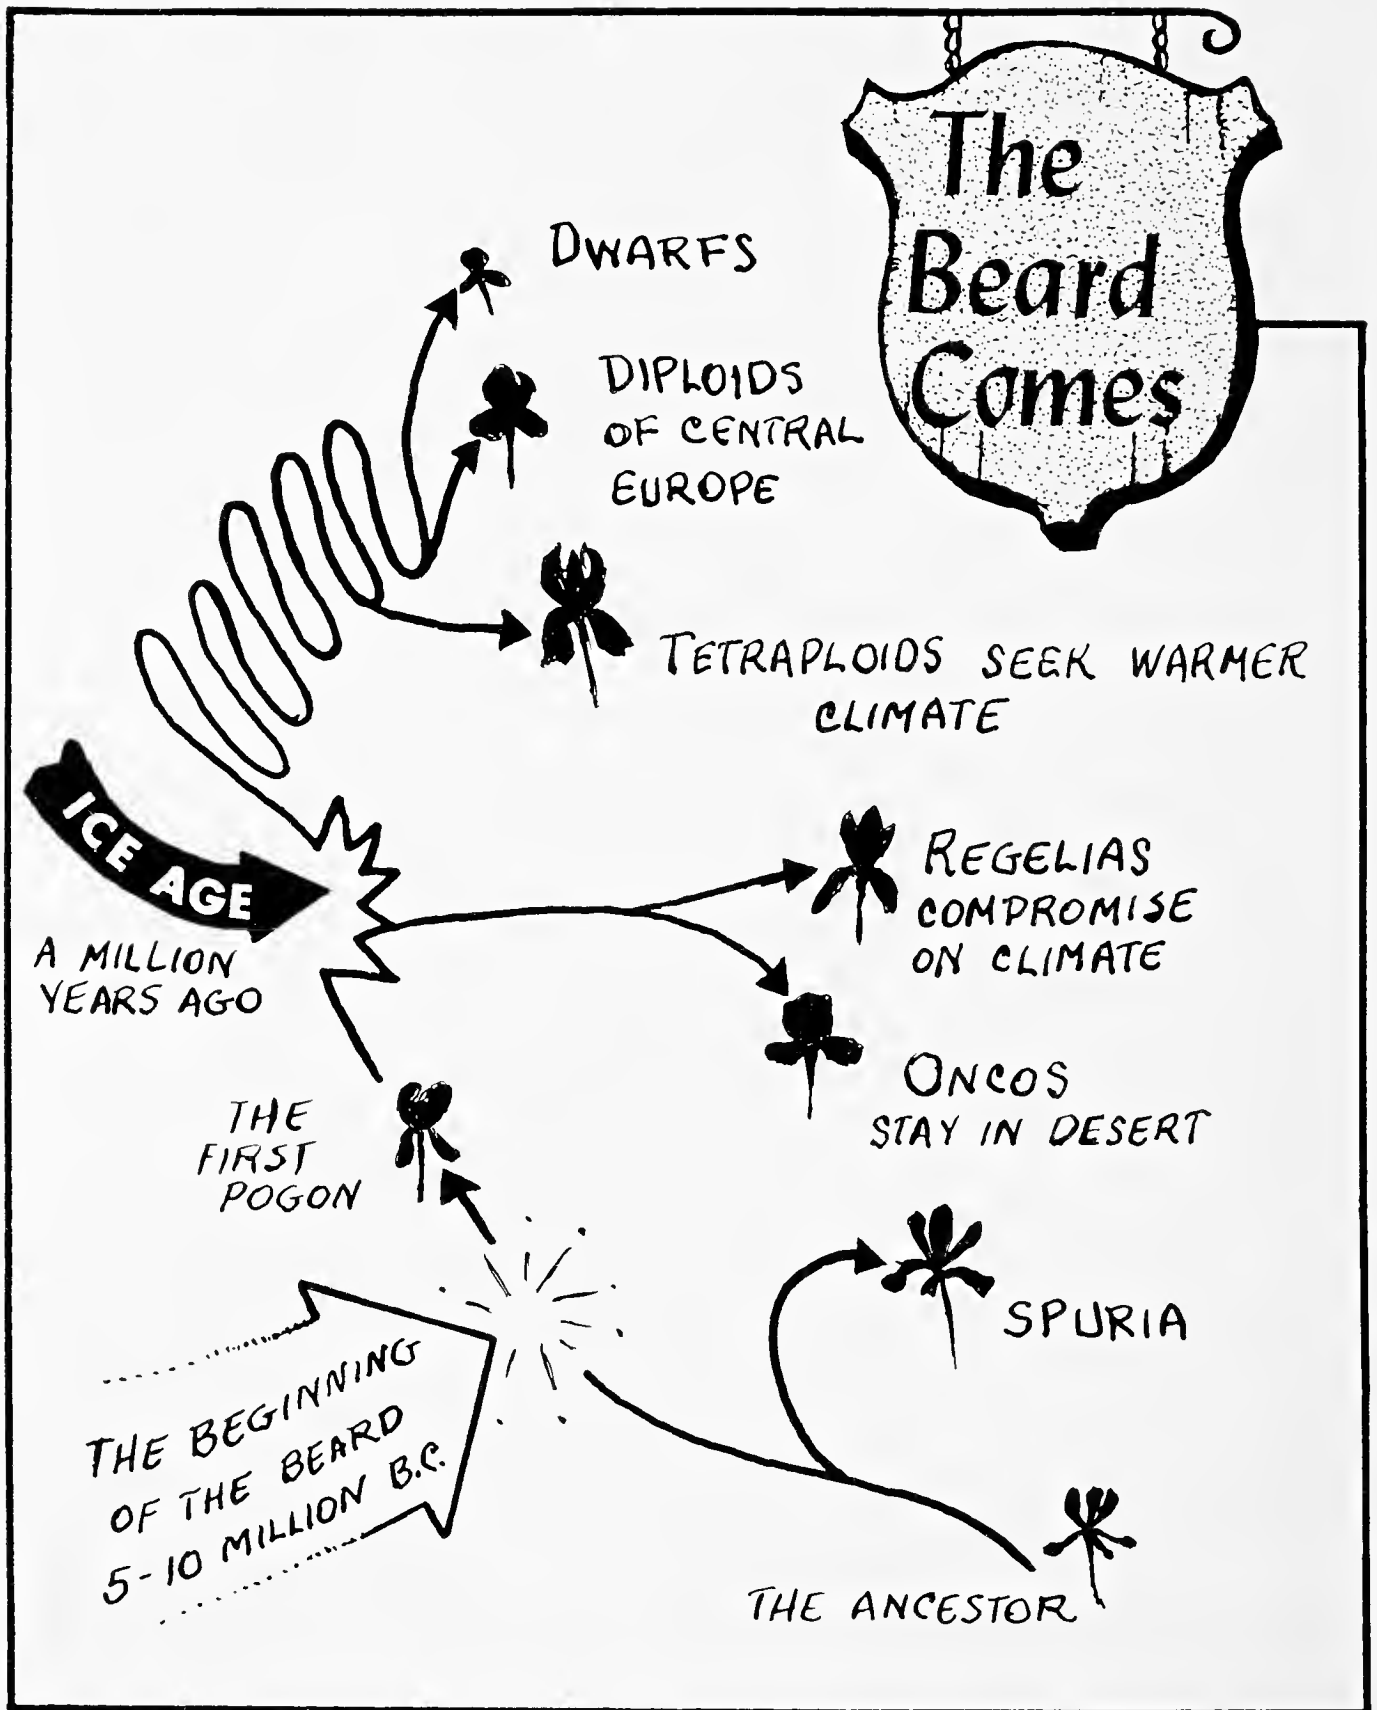 The
Beard
Comes
DWARFS
DIPLOIDS
OF CENTRAL
EUROPE
TETRAPLOIDS SEEK WARMER
CLIMATE
ICE AGE
A MILLION
YEARS AGO
REGELIAS
COMPROMISE
ON CLIMATE
ONCOS
STAY IN DESERT
THE
FIRST
POGON
SPURIA
THE BEGINNING
OF THE BEARD
5-10 MILLION B.C.
THE ANCESTOR